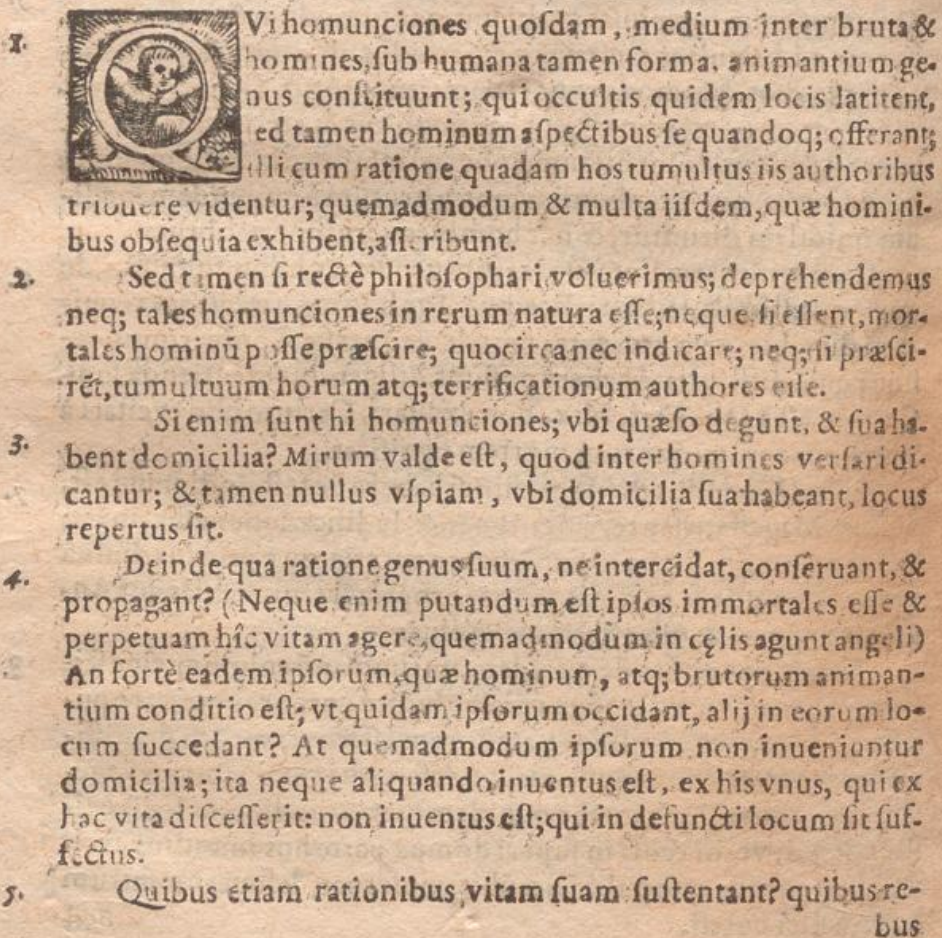 1. QVi homunciones quoſdam, medium inter bruta &
homines, ſub humana tamen forma, animantium ge-
nus conſtituunt; qui occultis quidem locis latitent,
ſed tamen hominum aſpectibus ſe quandoq; offerant;
illi cum ratione quadam hos tumultus iis authoribus
tribuere videntur; quemadmodum & multa iiſdem, quæ homini-
bus obſequia exhibent, aſſcribunt.
2. Sed tamen ſi rectè philoſophari voluerimus; deprehendemus
neq; tales homunciones in rerum natura eſſe; neque ſi eſſent, mor-
tales hominũ poſſe præſcire; quocirca nec indicare; neq; ſi præſci-
rẽt, tumultuum horum atq; terrificationum authores eſſe.
3. Si enim ſunt hi homunciones; vbi quæſo degunt, & ſua ha-
bent domicilia? Mirum valde eſt, quod inter homines verſari di-
cantur; & tamen nullus vſpiam, vbi domicilia ſua habeant, locus
repertus ſit.
4. Deinde qua ratione genus ſuum, ne intercidat, conſeruant, &
propagant? (Neque enim putandum eſt ipſos immortales eſſe &
perpetuam hîc vitam agere, quemadmodum in cęlis agunt angeli)
An fortè eadem ipſorum, quæ hominum, atq; brutorum animan-
tium conditio eſt; vt quidam ipſorum occidant, alij in eorum lo-
cum ſuccedant? At quemadmodum ipſorum non inueniuntur
domicilia; ita neque aliquando inuentus eſt, ex his vnus, qui ex
hac vita diſceſſerit: non inuentus eſt; qui in defuncti locum ſit ſuf-
fectus.
5. Quibus etiam rationibus vitam ſuam ſuſtentant? quibus re-
bus